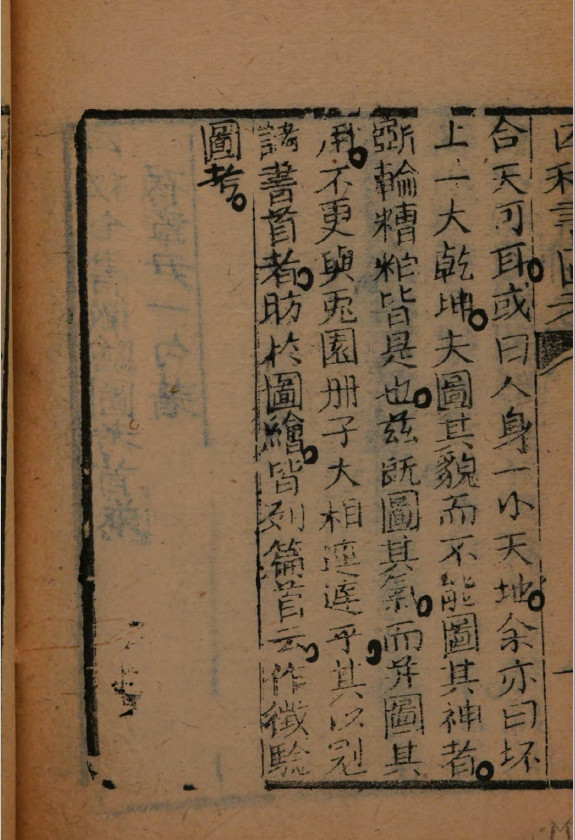 合天可耳。或曰人身一小天地。余亦曰坏
上一大乾坤。夫圖其貌而不能圖其神者。
斲輪糟粕皆是也。茲既圖其氣。而并圖其
用。不更與兎園册子大相逕乎。其以冠
諸書首者。昉於圖繪。皆列篇首云。作徵驗
圖考。